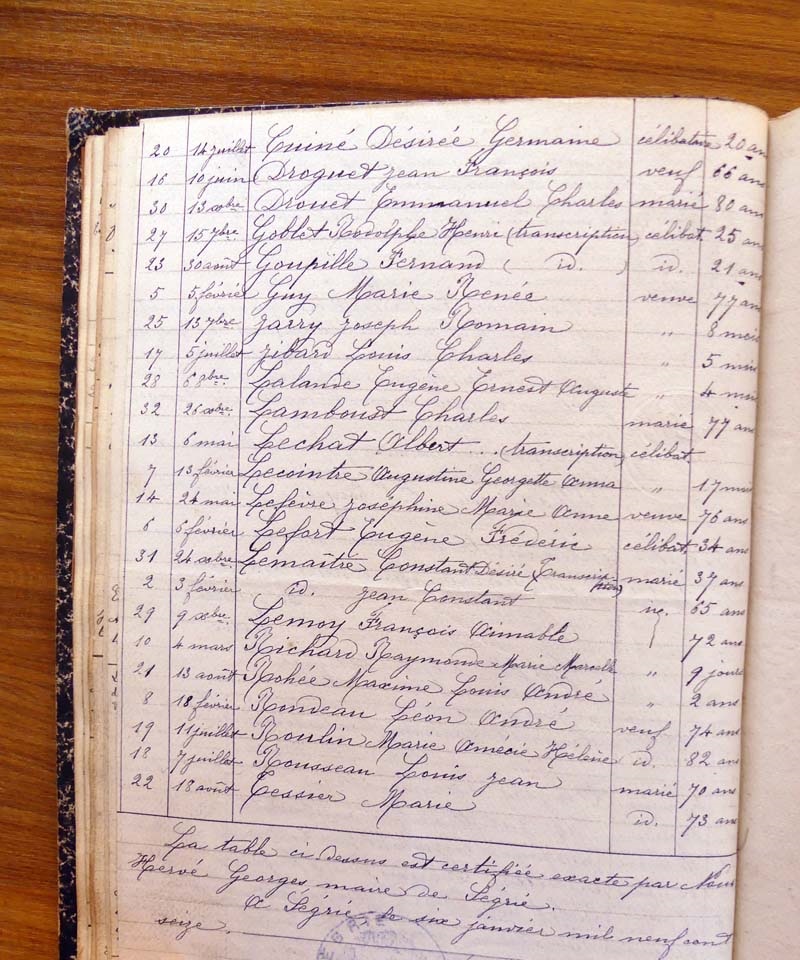 20 14 juillet Cuiné Désirée Germaine célibataire 20 ans
16 10 juin Droguet Jean François veuf 66 ans
30 13 xbre Drouet Emmanuel Charles marié 80 ans
27 15 7bre Goblet Rodolphe Henri (transcription) célibat. 25 ans
23 30 août Goupille Fernand ( id. ) id. 21 ans
5 5 février Guy Marie Renée veuve 77 ans
25 13 7bre Jarry Joseph Romain " 8 mois
17 5 juillet Jibard Louis Charles " 5 mois
28 6 8bre Lalande Eugène Ernest Auguste " 4 mois
32 26 xbre Lamboust Charles marié 77 ans
13 6 mai Lechat Albert ... (transcription) célibat.
7 13 février Lecointre Augustine Georgette Anna " 17 mois
14 24 mai Lefèvre Joséphine Marie Anne veuve 76 ans
6 6 février Lefort Eugène Fréderic célibat. 34 ans
31 24 xbre Lemaître Constant Désiré (Transcription) marié 37 ans
2 3 février id. Jean Constant id. 65 ans
29 9 xbre Lemoy François Aimable 72 ans
10 4 mars Richard Raymonde Marie Marcelle " 9 jours
21 13 août Rohée Maxime Louis André " 2 ans
8 18 février Rondeau Léon André veuf 74 ans
19 11 juillet Roulin Marie Amécie Hélène id. 82 ans
18 7 juillet Rousseau Louis Jean marié 70 ans
22 18 août Tessier Marie id. 73 ans
La table ci dessus est certifiée exacte par Nous
Hervé Georges, maire de Ségrie.
A Ségrie le six janvier mil neuf cent
seize.